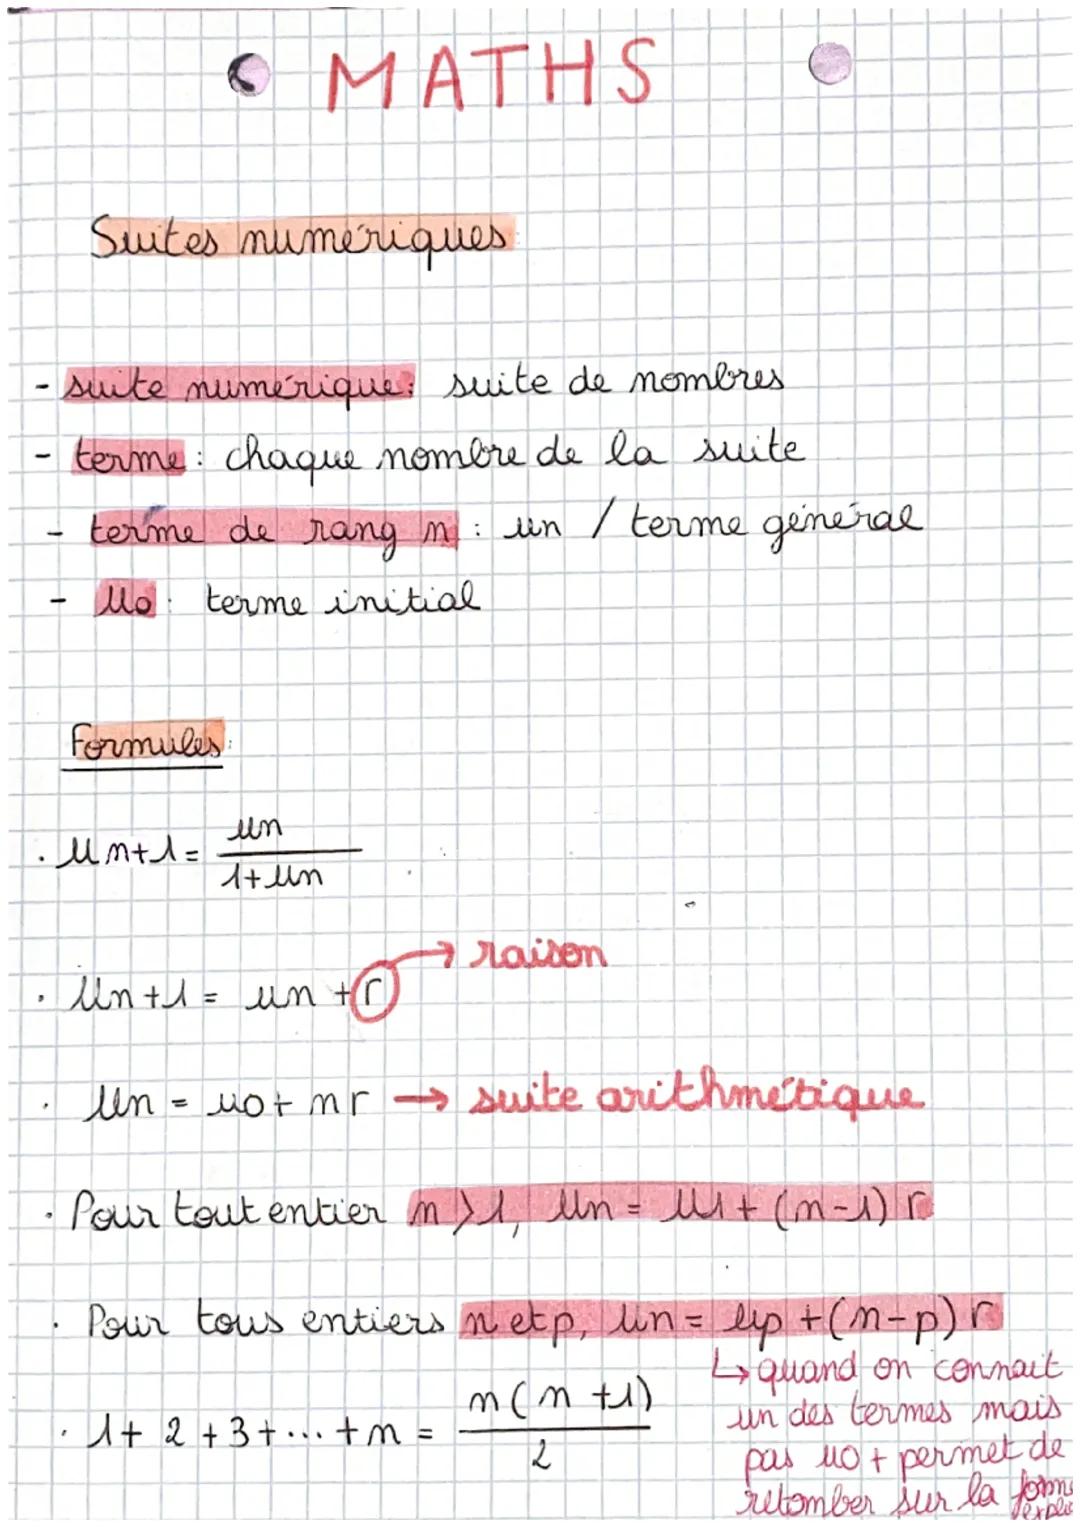 MATHS
Suites numériques
- suite numérique: suite de nombres
- terme: chaque nombre de la suite
- terme de rang n: un / terme général
- U0: terme initial
Formules:
. Un+1 = un / 1+Un
raison
. Un+1 = un + r
. Un = u0 + nr → suite arithmétique
. Pour tout entier n>1, Un = U1 + (n-1) r
. Pour tous entiers n et p, Un = up + (n-p) r
↳ quand on connait
un des termes mais
pas u0 + permet de
retomber sur la forme
. 1+2+3+...+n = n(n+1) / 2